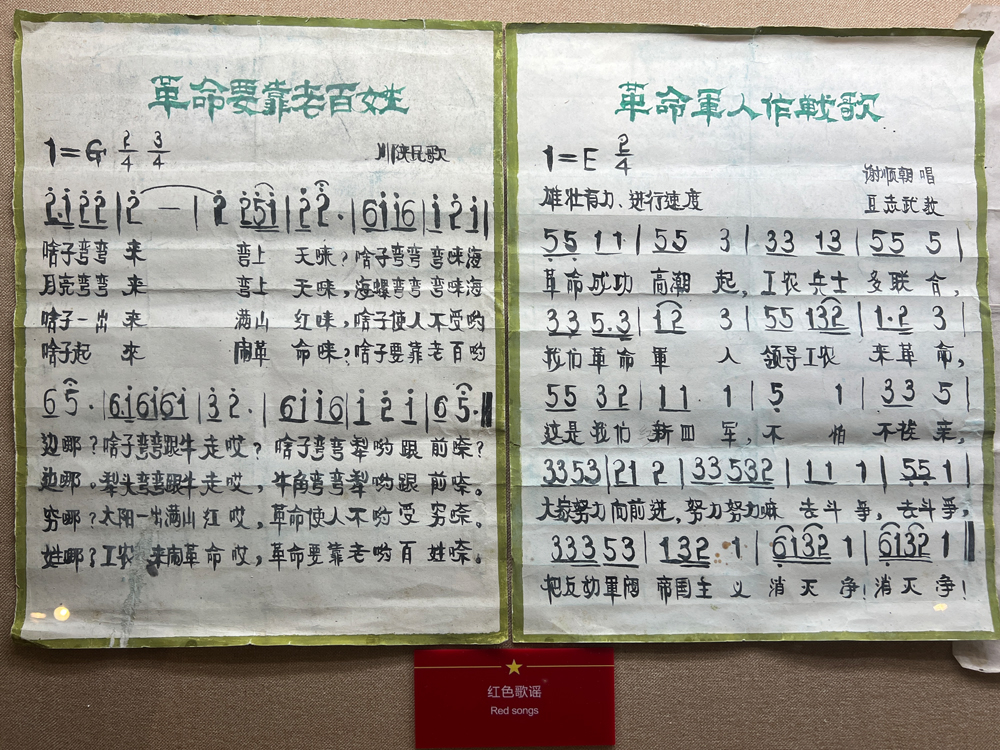 革命要靠老百姓
1=G 2/4 3/4
川陕民歌
啥子弯弯 来 弯上 天味？啥子弯弯 弯味海
月亮弯弯 来 弯上 天味，海螺弯弯 弯味海
啥子一出 来 满山 红味，啥子使人不受哟
啥子起 来 闹革 命味？啥子要靠老百哟
边哪？啥子弯弯跟牛走哎？啥子弯弯犁哟跟前嗦？
边哪。犁头弯弯跟牛走哎，牛角弯弯犁哟跟前嗦。
穷哪？太阳一出满山红哎，革命使人不哟受穷嗦。
姓哪？工农 来闹革命哎，革命要靠老哟百姓嗦。
革命軍人作戰歌
1=E 2/4
谢顺朝 唱
雄壮有力、进行速度
55 11 | 55 3 | 33 13 | 55 5 |
革命成功 高潮 起，工农兵士 多联合，
33 5.3 | 12 3 | 55 132 | 1.2 3 |
我们革命軍 人 领导工农 来革命，
55 32 | 11 1 | 5 1 | 33 5 |
这是我们 新四 军，不 怕
3353 | 21 2 | 33532 | 11 1 | 55 1 |
大家努力向前进，努力努力嘛 去斗争，去斗争，
33353 | 132 1 | 6132 1 | 6132 1 ‖
把反动軍阀 帝国主 义 消灭净！消灭净！
红色歌谣
Red songs